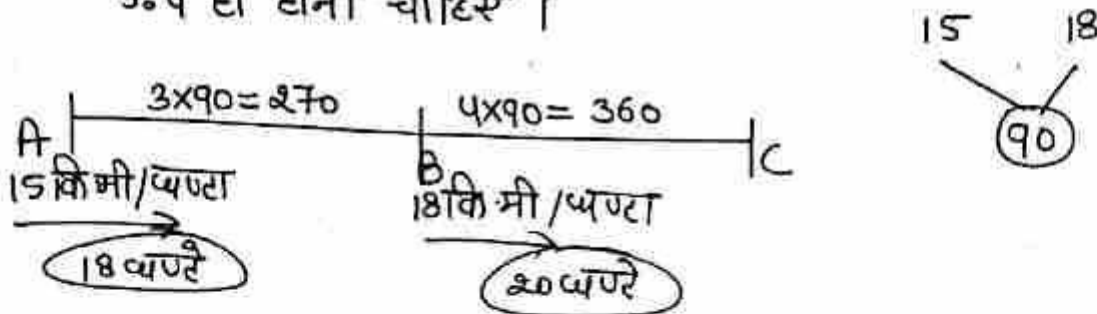 ही होना चाहिए |
15 18
90
3x90=270 4x90= 360
A B C
15 कि मी/घण्टा 18 कि.मी /घण्टा
18 घण्टे 20 घण्टे